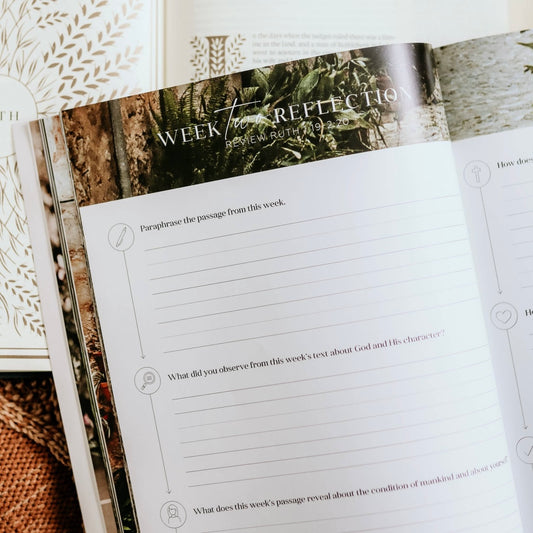 RUTH
the days when the judges ruled there was a
WEEK two REFLECTION
REVIEW RUTH
Paraphrase the passage from this week.
What did you observe from this week's text about God and His character?
What does this week's passage reveal about the condition of mankind and about yourself?
How does